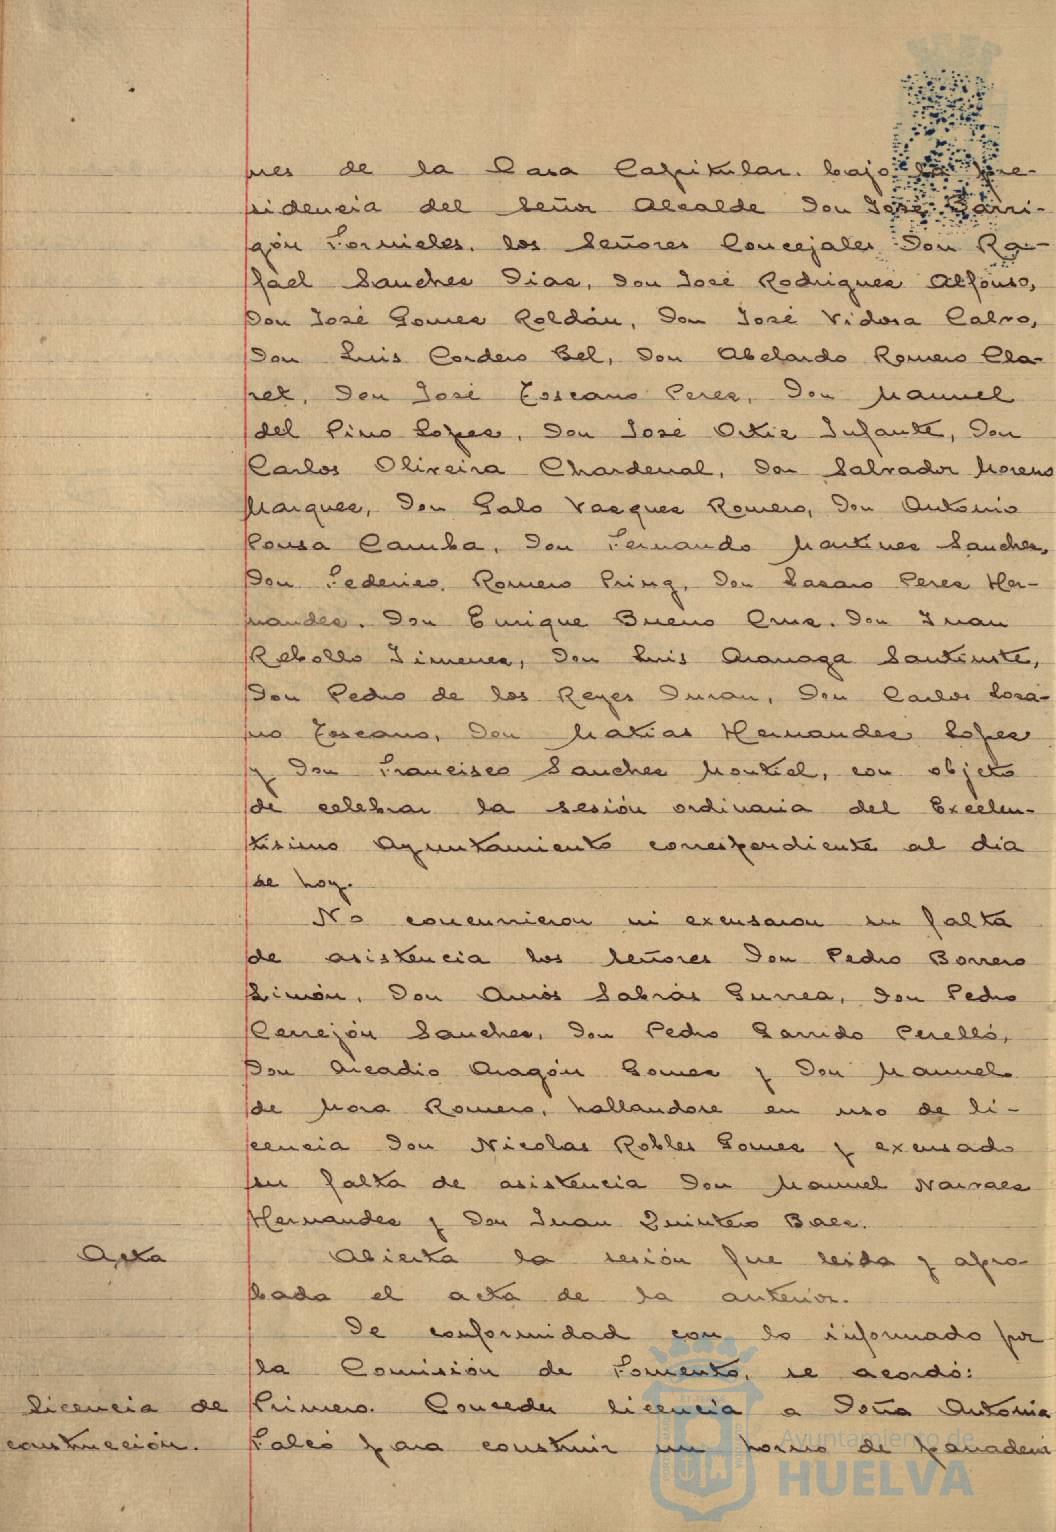 nes de la Casa Capitular. bajo la pre-
sidencia del Señor Alcalde Don José Barri-
gón Fornieles. los Señores Concejales Don Ra-
fael Sanches Dias, Don José Rodrigues Alfonso,
Don José Gomes Roldán, Don José Vidosa Calvo,
Don Luis Cordero Bel, Don Abelardo Romero Cla-
ret, Don José Toscano Peres, Don Manuel
del Pino Lopes, Don José Ortis Infante, Don
Carlos Oliveira Chardenal, Don Salvador Moreno
Marques, Don Galo Vasques Romero, Don Antonio
Pousa Camba, Don Fernando Martines Sanches,
Don Federico Romero Pring, Don Lasaro Peres Her-
nandes. Don Enrique Bueno Crus. Don Juan
Rebollo Jimenes, Don Luis Aranaga Santiuste,
Don Pedro de los Reyes Duran, Don Carlos Losa-
no Toscano, Don Matias Hernandes Lopes
y Don Francisco Sanches Montiel, con objeto
de celebrar la sesión ordinaria del Excelen-
tisimo Ayuntamiento correspondiente al dia
de hoy.
No concurrieron ni excusaron su falta
de asistencia los Señores Don Pedro Borrero
Limón, Don Amós Sabrás Gurrea, Don Pedro
Cerrejón Sanches, Don Pedro Garrido Perelló,
Don Arcadio Aragón Gomes y Don Manuel
de Mora Romero, hallandose en uso de li-
cencia Don Nicolas Robles Gomes y excusado
su falta de asistencia Don Manuel Narvaes
Hernandes y Don Juan Quintero Baes.
Acta Abierta la sesión fue leida y apro-
bada el acta de la anterior.
De conformidad con lo informado por
la Comisión de Fomento, se acordó:
Licencia de Primero. Conceder licencia a Doña Antonia
construcción. Falcó para construir un horno de panaderi
Ayuntamiento de
HUELVA